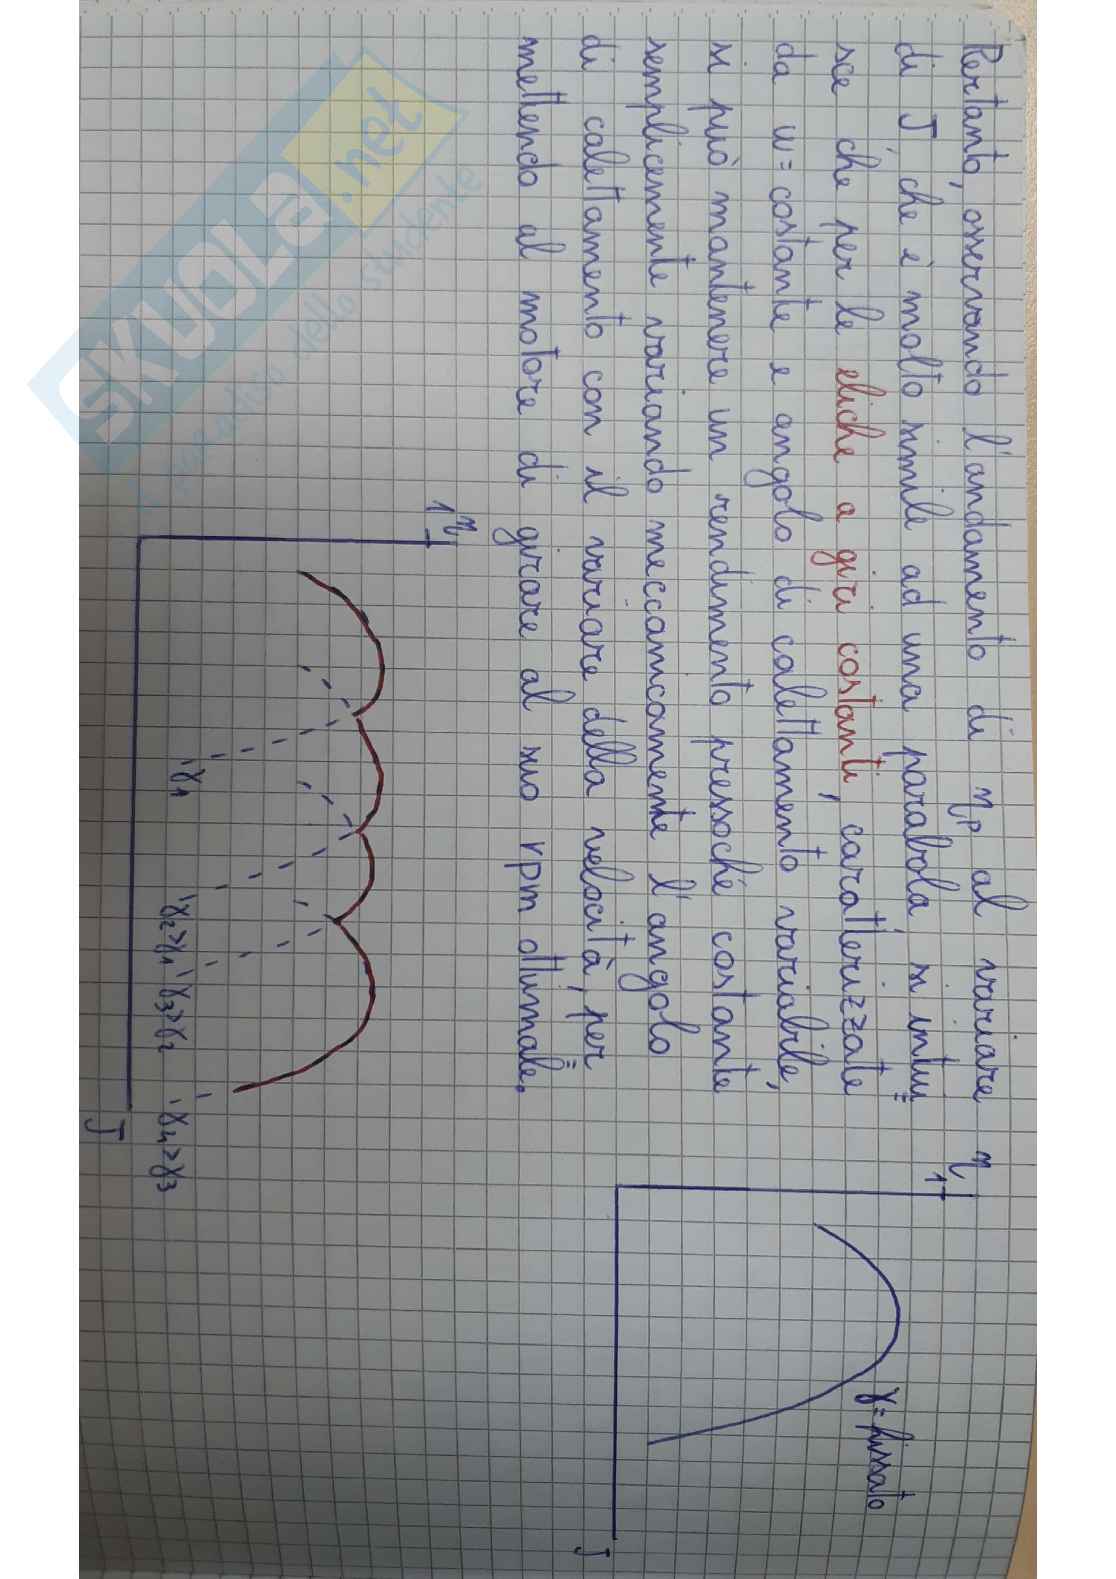 Pertanto, osservando l'andamento di ηp al variare
di J, che è molto simile ad una parabola, si intui=
sce che per le eliche a giri costanti, caratterizzate
da ω=costante e angolo di calettamento variabile,
si può mantenere un rendimento pressoché costante
semplicemente variando meccanicamente l'angolo
di calettamento con il variare della velocità, per=
mettendo al motore di girare al suo rpm ottimale.
η
1
γ=fissato
J
η
1
γ1
γ2>γ1
γ3>γ2
γ4>γ3
J
SKUOLA.net
dello studente